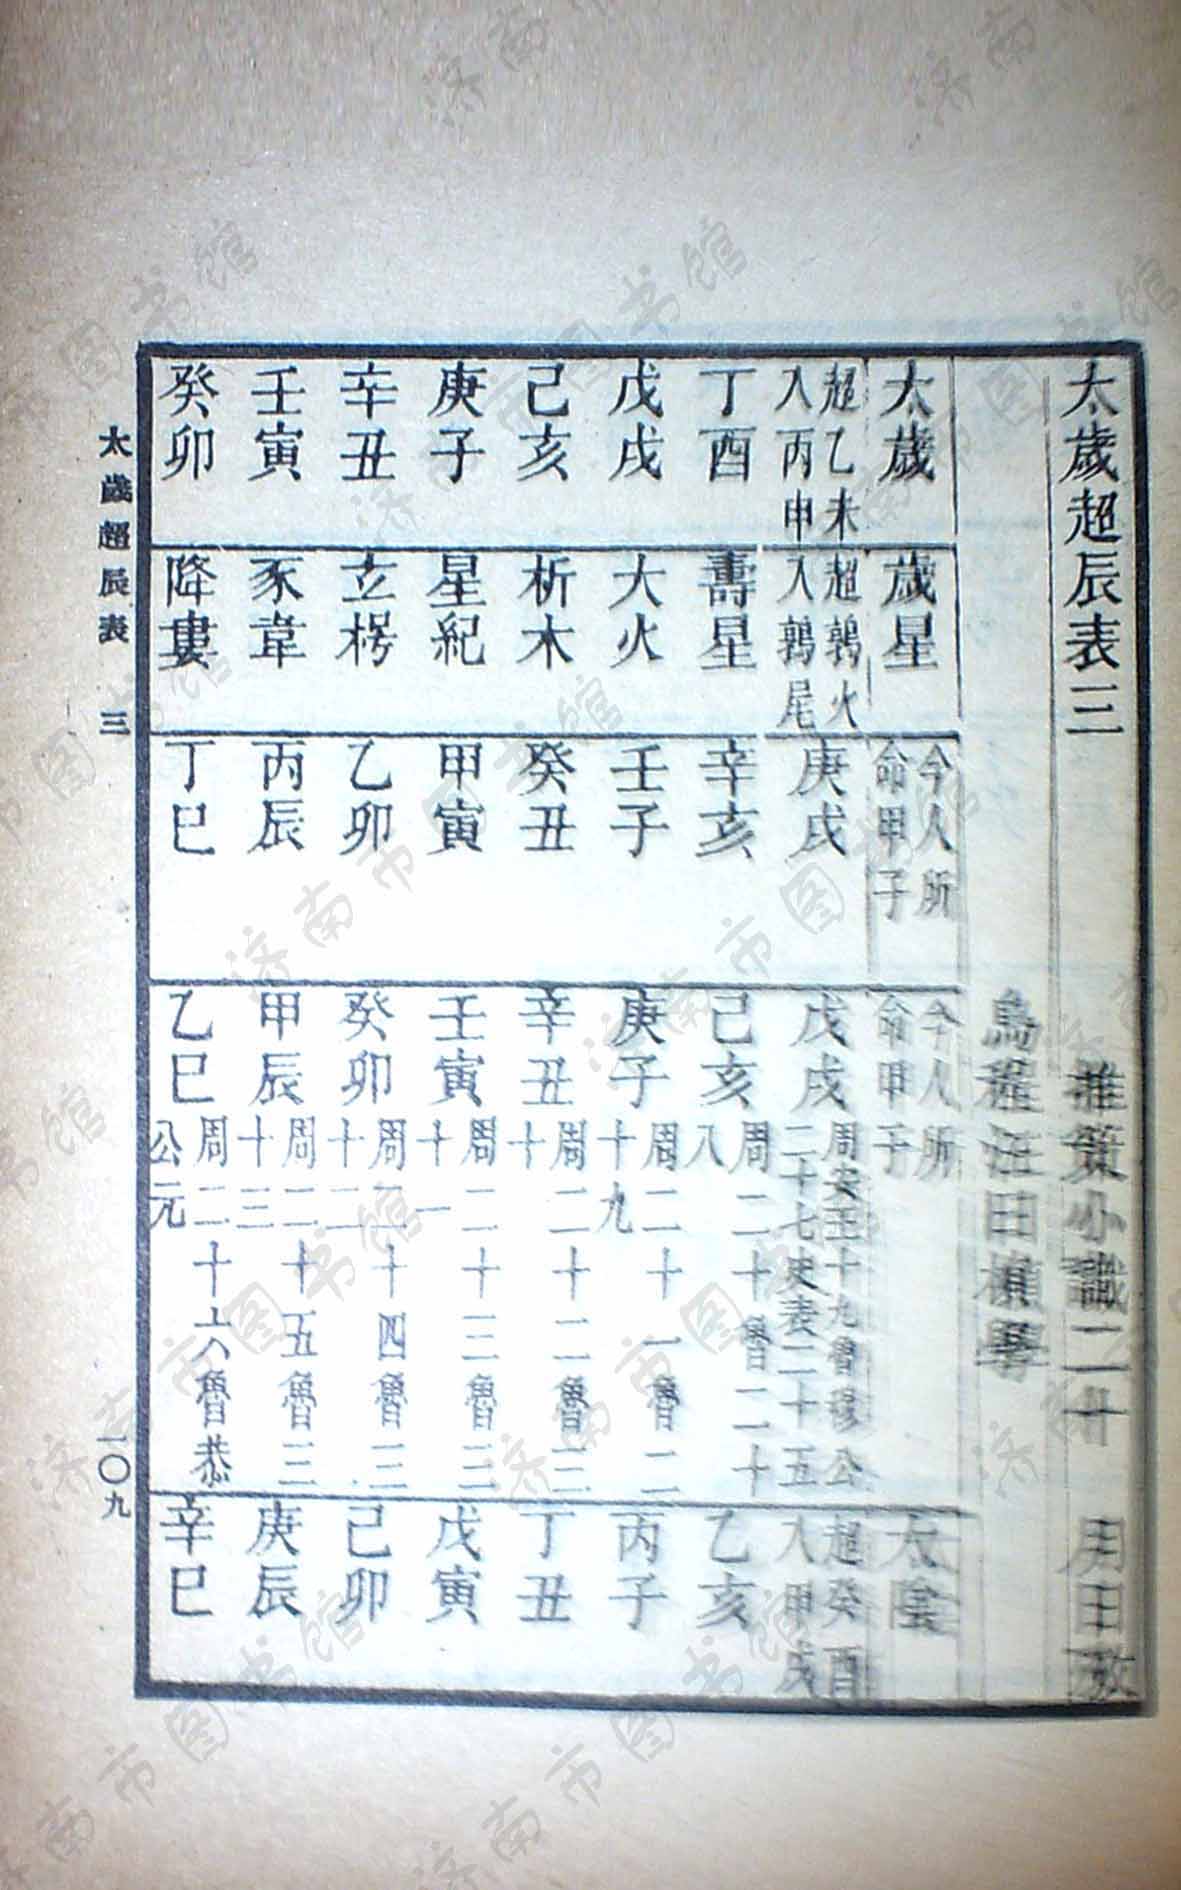 太歲超辰表三　推策小識二十　用日敬
烏程汪曰楨學
太歲　歲星　今人所命甲子　今人所命甲子　太陰
超乙未入丙申　超鶉火入鶉尾　庚戌　戊戌　周安王十九魯穆公二十七史表二十五　超癸酉入甲戌
丁酉　壽星　辛亥　己亥　周二十魯二十八　乙亥
戊戌　大火　壬子　庚子　周二十一魯二十九　丙子
己亥　析木　癸丑　辛丑　周二十二魯三十　丁丑
庚子　星紀　甲寅　壬寅　周二十三魯三十一　戊寅
辛丑　玄枵　乙卯　癸卯　周二十四魯三十二　己卯
壬寅　豕韋　丙辰　甲辰　周二十五魯三十三　庚辰
癸卯　降婁　丁巳　乙巳　周二十六魯恭公元　辛巳
太歲超辰表　三　一〇九